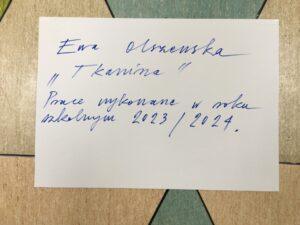 Ewa Olszewska
„Tkanina”
Prace wykonane w roku
szkolnym 2023/2024.